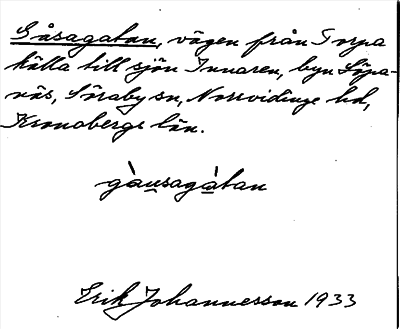 Gåsagatan, vägen från Torpa
källa till sjön Innaren, byn Löpa-
näs, Söraby sn, Norrvidinge hd,
Kronobergs län.
gàusagàtan
Erik Johannesson 1933